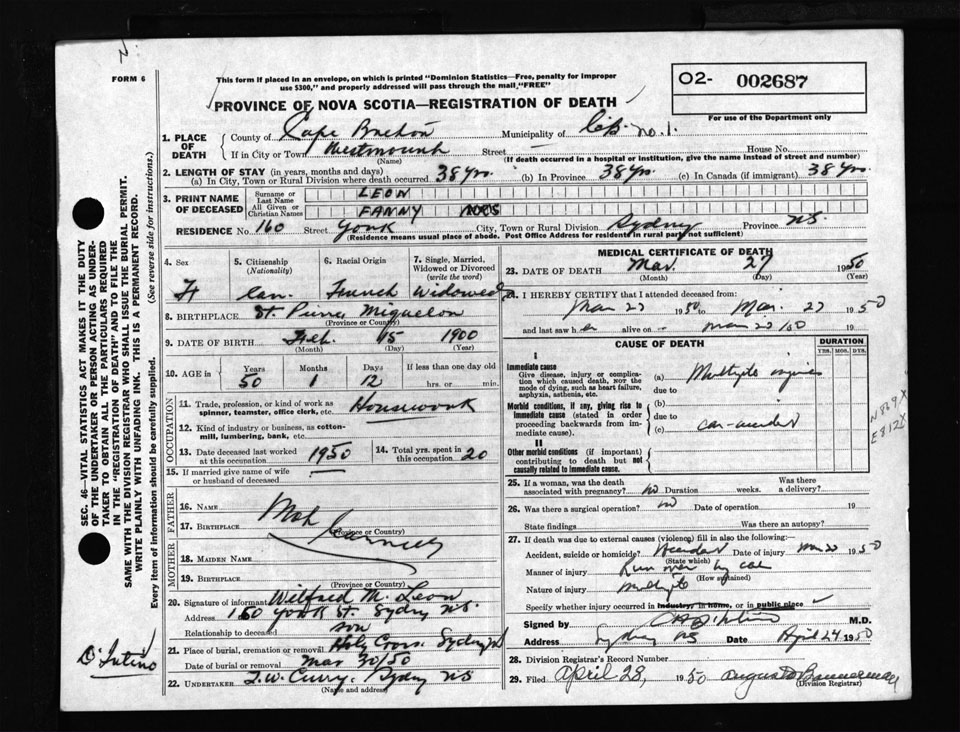 FORM 6
This form if placed in an envelope, on which is printed "Dominion Statistics—Free, penalty for improper
use $300," and properly addressed will pass through the mail, "FREE"
O2- 002687
For use of the Department only
PROVINCE OF NOVA SCOTIA—REGISTRATION OF DEATH
SEC. 46—VITAL STATISTICS ACT MAKES IT THE DUTY
OF THE UNDERTAKER OR PERSON ACTING AS UNDER-
TAKER TO OBTAIN ALL THE PARTICULARS REQUIRED
IN THE "REGISTRATION OF DEATH" AND TO FILE THE
SAME WITH THE DIVISION REGISTRAR WHO SHALL ISSUE THE BURIAL PERMIT.
WRITE PLAINLY WITH UNFADING INK. THIS IS A PERMANENT RECORD.
Every item of information should be carefully supplied. (See reverse side for instructions.)
1. PLACE OF DEATH
County of Cape Breton Municipality of C.B. No. 1.
If in City or Town Westmount Street House No.
(Name) (If death occurred in a hospital or institution, give the name instead of street and number)
2. LENGTH OF STAY (in years, months and days)
(a) In City, Town or Rural Division where death occurred 38 yrs. (b) In Province 38 yrs. (c) In Canada (if immigrant) 38 yrs.
3. PRINT NAME OF DECEASED
Surname or Last Name LEON
All Given or Christian Names FANNY
RESIDENCE No. 160 Street York City, Town or Rural Division Sydney Province N.S.
(Residence means usual place of abode. Post Office Address for residents in rural parts not sufficient)
4. Sex
F
5. Citizenship
(Nationality)
Can.
6. Racial Origin
French
7. Single, Married,
Widowed or Divorced
(write the word)
Widowed
8. BIRTHPLACE St. Pierre Miquelon
(Province or Country)
9. DATE OF BIRTH Feb. 15 1900
(Month) (Day) (Year)
10. AGE in Years Months Days If less than one day old
50 1 12 hrs. or min.
OCCUPATION
11. Trade, profession, or kind of work as
spinner, teamster, office clerk, etc. Housework
12. Kind of industry or business, as cotton-
mill, lumbering, bank, etc.
13. Date deceased last worked
at this occupation 1950
14. Total yrs. spent in
this occupation 20
15. If married give name of wife
or husband of deceased —
FATHER
16. Name
17. Birthplace
(Province or Country)
MOTHER
18. Maiden Name
19. Birthplace
(Province or Country)
20. Signature of informant Wilfred M. Leon
Address 160 York St. Sydney N.S.
Relationship to deceased son
21. Place of burial, cremation or removal Holy Cross Sydney
Date of burial or removal Mar 30/50
22. UNDERTAKER T.W. Curry. Sydney N.S.
(Name and address)
MEDICAL CERTIFICATE OF DEATH
23. DATE OF DEATH Mar. 27 1950
(Month) (Day) (Year)
24. I HEREBY CERTIFY that I attended deceased from:
Mar 27 1950 to Mar. 27 1950
and last saw h er alive on Mar 27/50 19
CAUSE OF DEATH
DURATION
YRS. MOS. DYS.
I
Immediate cause
Give disease, injury or complica-
tion which caused death, NOT the
mode of dying, such as heart failure,
asphyxia, asthenia, etc.
(a) Multiple injuries
due to
Morbid conditions, if any, giving rise to
immediate cause (stated in order
proceeding backwards from im-
mediate cause).
(b)
due to
(c) car-accident
II
Other morbid conditions (if important)
contributing to death but not
causally related to immediate cause.
N869X
E812X
25. If a woman, was the death
associated with pregnancy? no Duration weeks. Was there
a delivery?
26. Was there a surgical operation? no Date of operation 19
State findings Was there an autopsy?
27. If death was due to external causes (violence) fill in also the following:
Accident, suicide or homicide? Accident Date of injury Mar 27 1950
(State which)
Manner of injury Run over by car
(How sustained)
Nature of injury multiple
Specify whether injury occurred in industry, in home, or in public place ✓
Signed by M.D.
Address Sydney NS Date April 24 1950
28. Division Registrar's Record Number
29. Filed April 28, 1950 Bannerman
(Division Registrar)